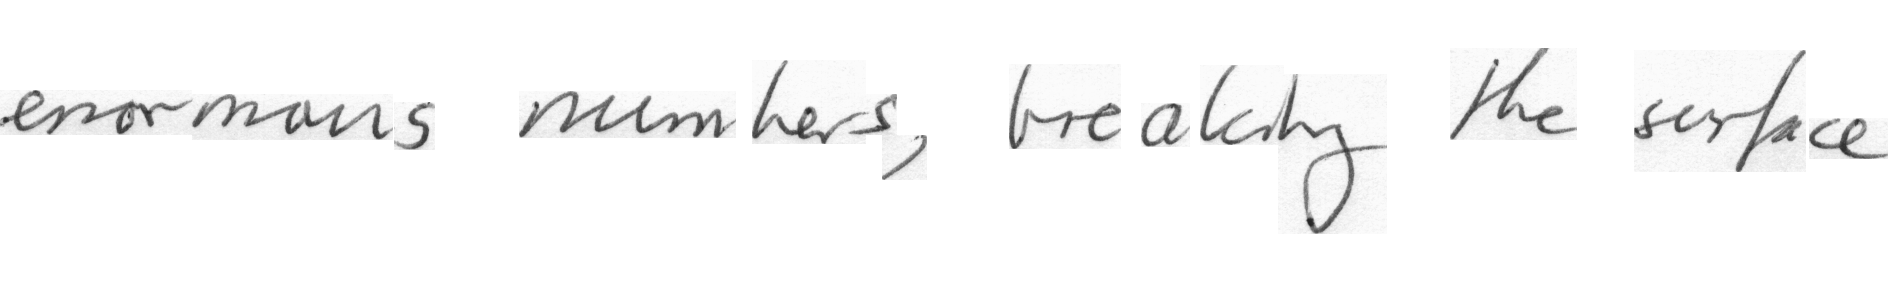 enormous numbers, breaking the surface